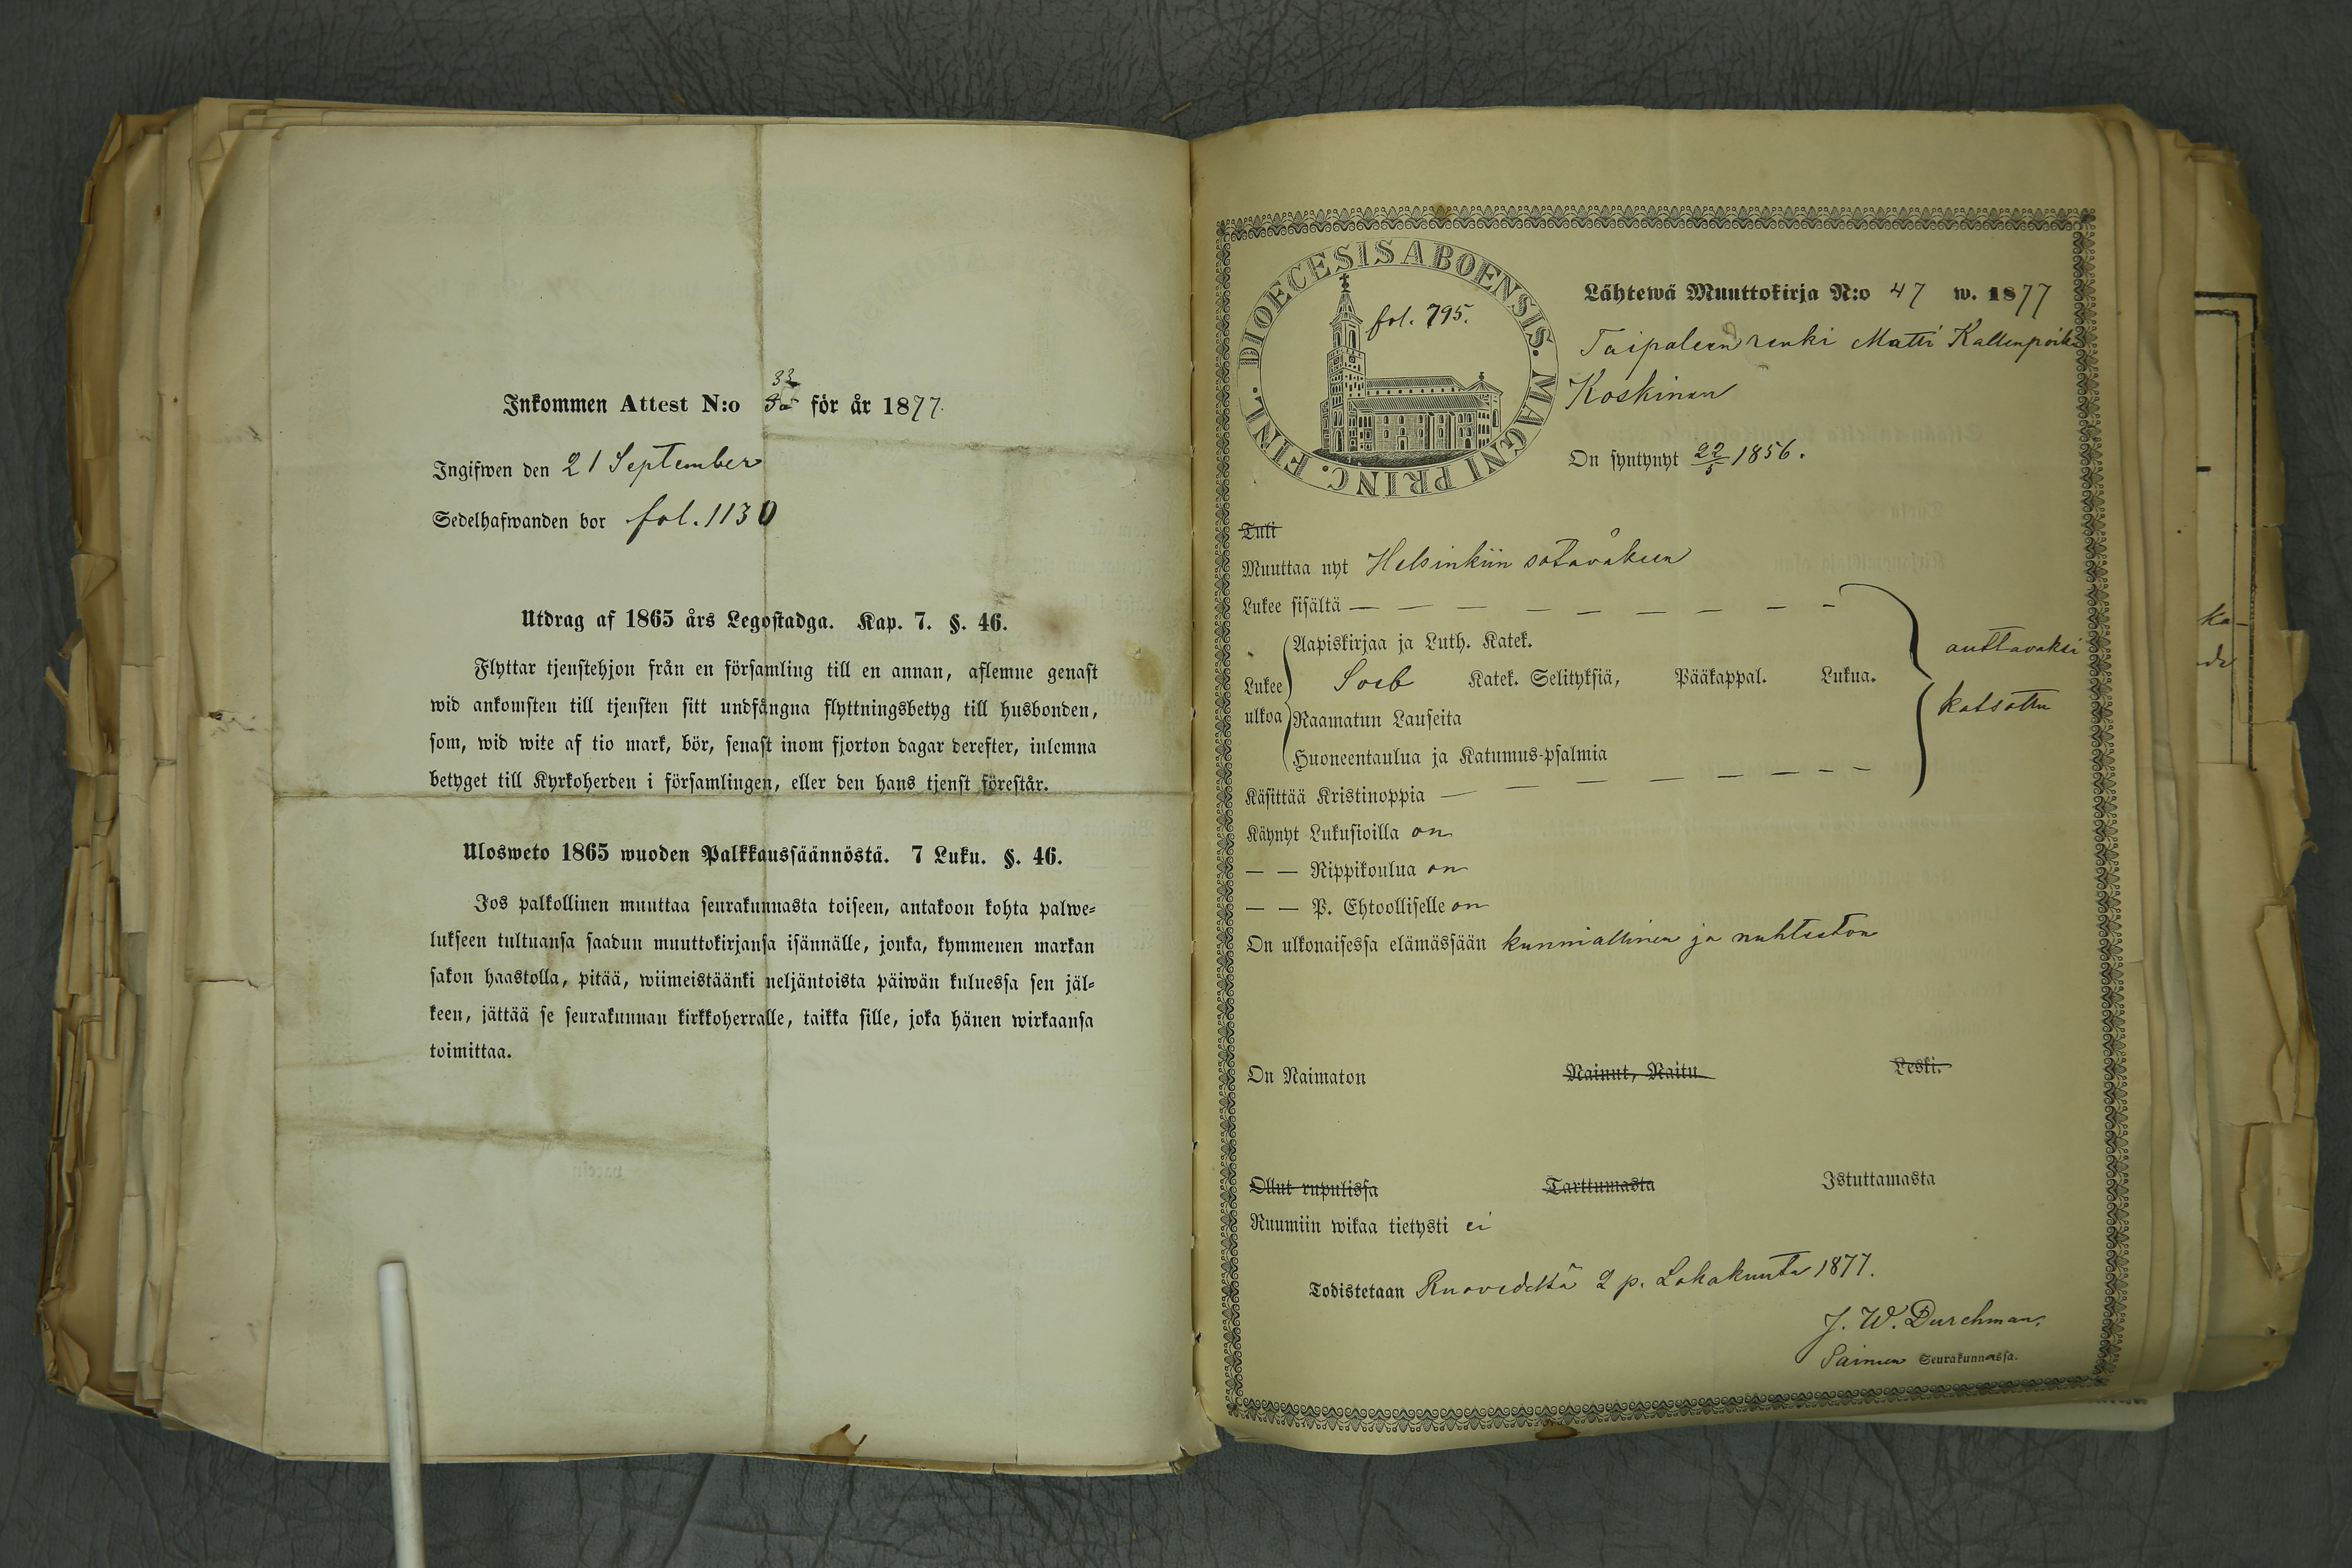 Inkommen Attest N:o 33 för år 1877.
Ingifwen den 21 September
Sedelhafwanden bor fol. 1130
Utdrag af 1865 års Legostadga. Kap. 7. §. 46.
Flyttar tjenstehjon från en församling till en annan, aflemne genast
wid ankomsten till tjensten sitt undfångna flyttningsbetyg till husbonden,
som, wid wite af tio mark, bör, senast inom fjorton dagar derefter, inlemna
betyget till Kyrkoherden i församlingen, eller den hans tjenst förestår.
Ulosweto 1865 wuoden Palkkaussäännöstä. 7 Luku. §. 46.
Jos palkollinen muuttaa seurakunnasta toiseen, antakoon kohta palwe=
lukseen tultuansa saadun muuttokirjansa isännälle, jonka, kymmenen markan
sakon haastolla, pitää, wiimeistäänki neljäntoista päiwän kuluessa sen jäl=
keen, jättää se seurakunnan kirkkoherralle, taikka sille, joka hänen wirkaansa
toimittaa.
DIOECESIS ABOENSIS. MAGNI PRINC. FINL.
fol. 795.
Lähtewä Muuttokirja N:o 47 w. 1877
Taipaleen renki Matti Kallenpoika
Koskinen
On syntynyt 22/5 1856.
Tuli
Muuttaa nyt Helsinkiin sotaväkeen
Lukee sisältä — — — — — — — — -
Aapiskirjaa ja Luth. Katek.
Lukee ulkoa Soeb Katek. Selityksiä, Pääkappal. Lukua.
Raamatun Lauseita
Huoneentaulua ja Katumus-psalmia
auttavaksi
katsottu
Käsittää Kristinoppia — — — — — - —
Käynyt Lukusioilla on
— — Rippikoulua on
— — P. Ehtoolliselle on
On ulkonaisessa elämässään kunniallinen ja nuhteeton
On Naimaton Nainut, Naitu Leski.
Ollut rupulissa Tarttumasta Istuttamasta
Ruumiin wikaa tietysti ei
Todistetaan Ruovedeltä 2 p. Lokakuuta 1877.
J. W. Durchman.
Seurakunnassa.